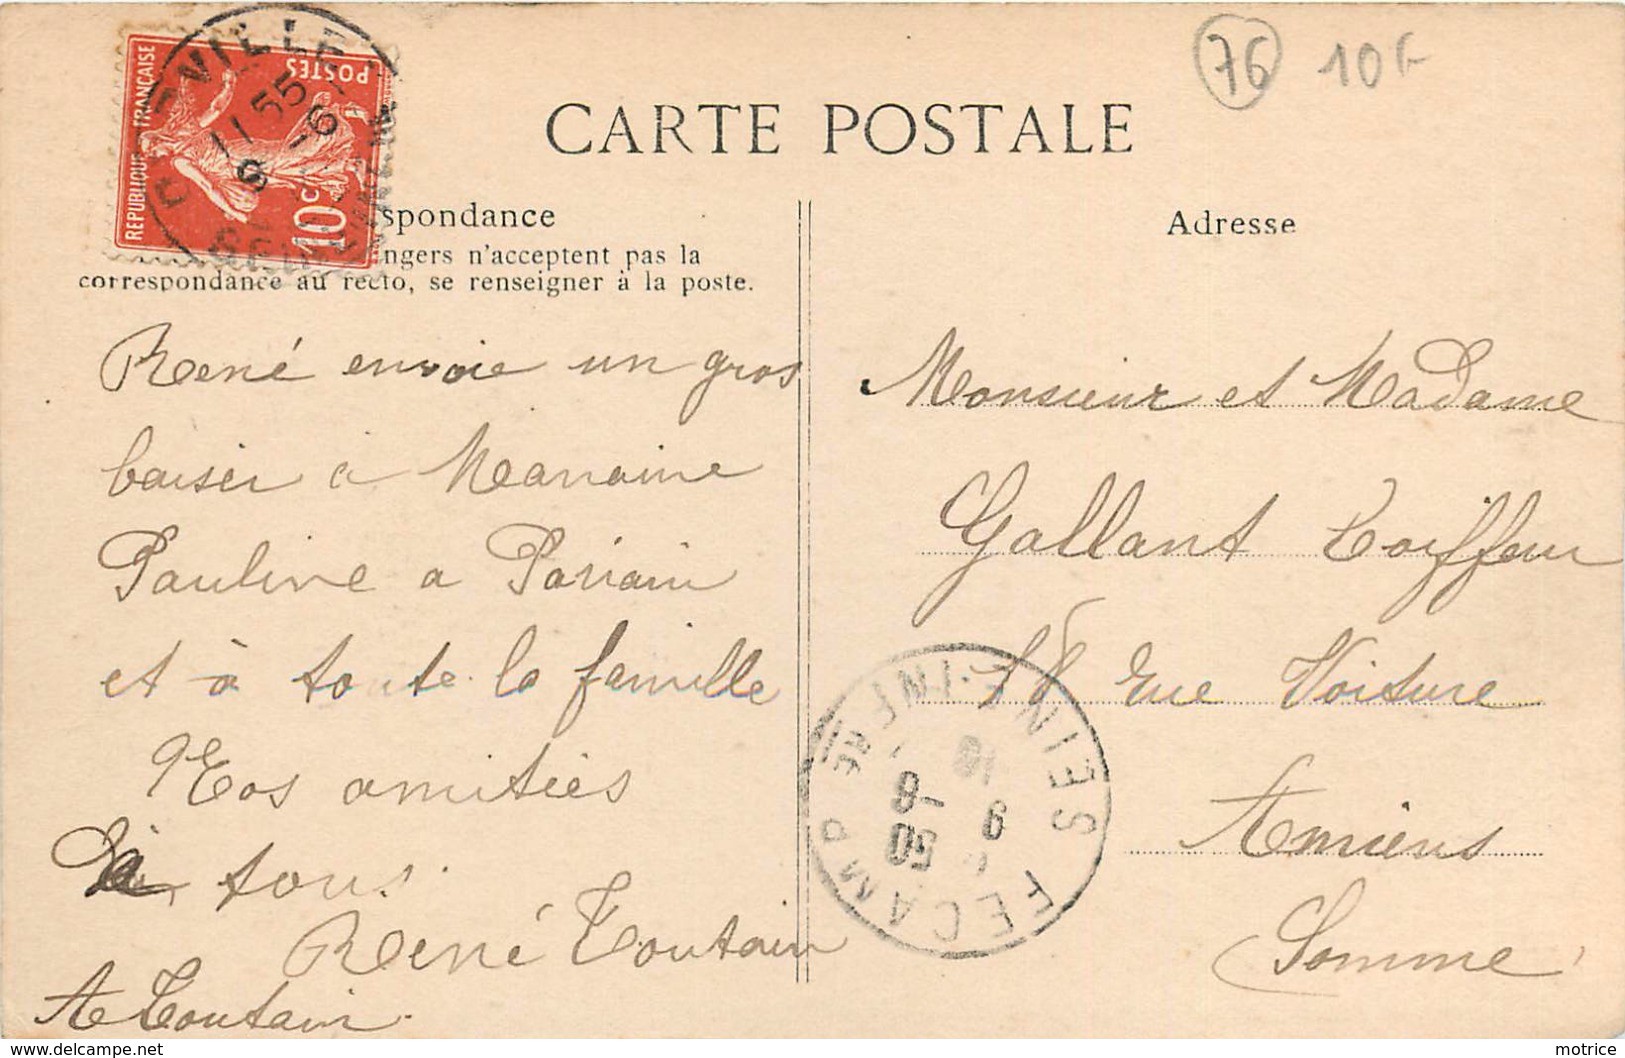 76 10F
CARTE POSTALE
REPUBLIQUE FRANÇAISE
POSTES
10c
VILLE
11 55
9 -6
spondance
Adresse
ngers n'acceptent pas la
correspondance au recto, se renseigner à la poste.
René envoie un gros
baiser à Marraine
Pauline a Parrain
et à toute la famille
Nos amitiés
à tous.
René Toutain
A Toutain
Monsieur et Madame
Gallant Coiffeur
18 rue Voiture
Amiens
Somme
FECAMP
SEINE-INFRE
9 -6
50
delcampe.net
motrice